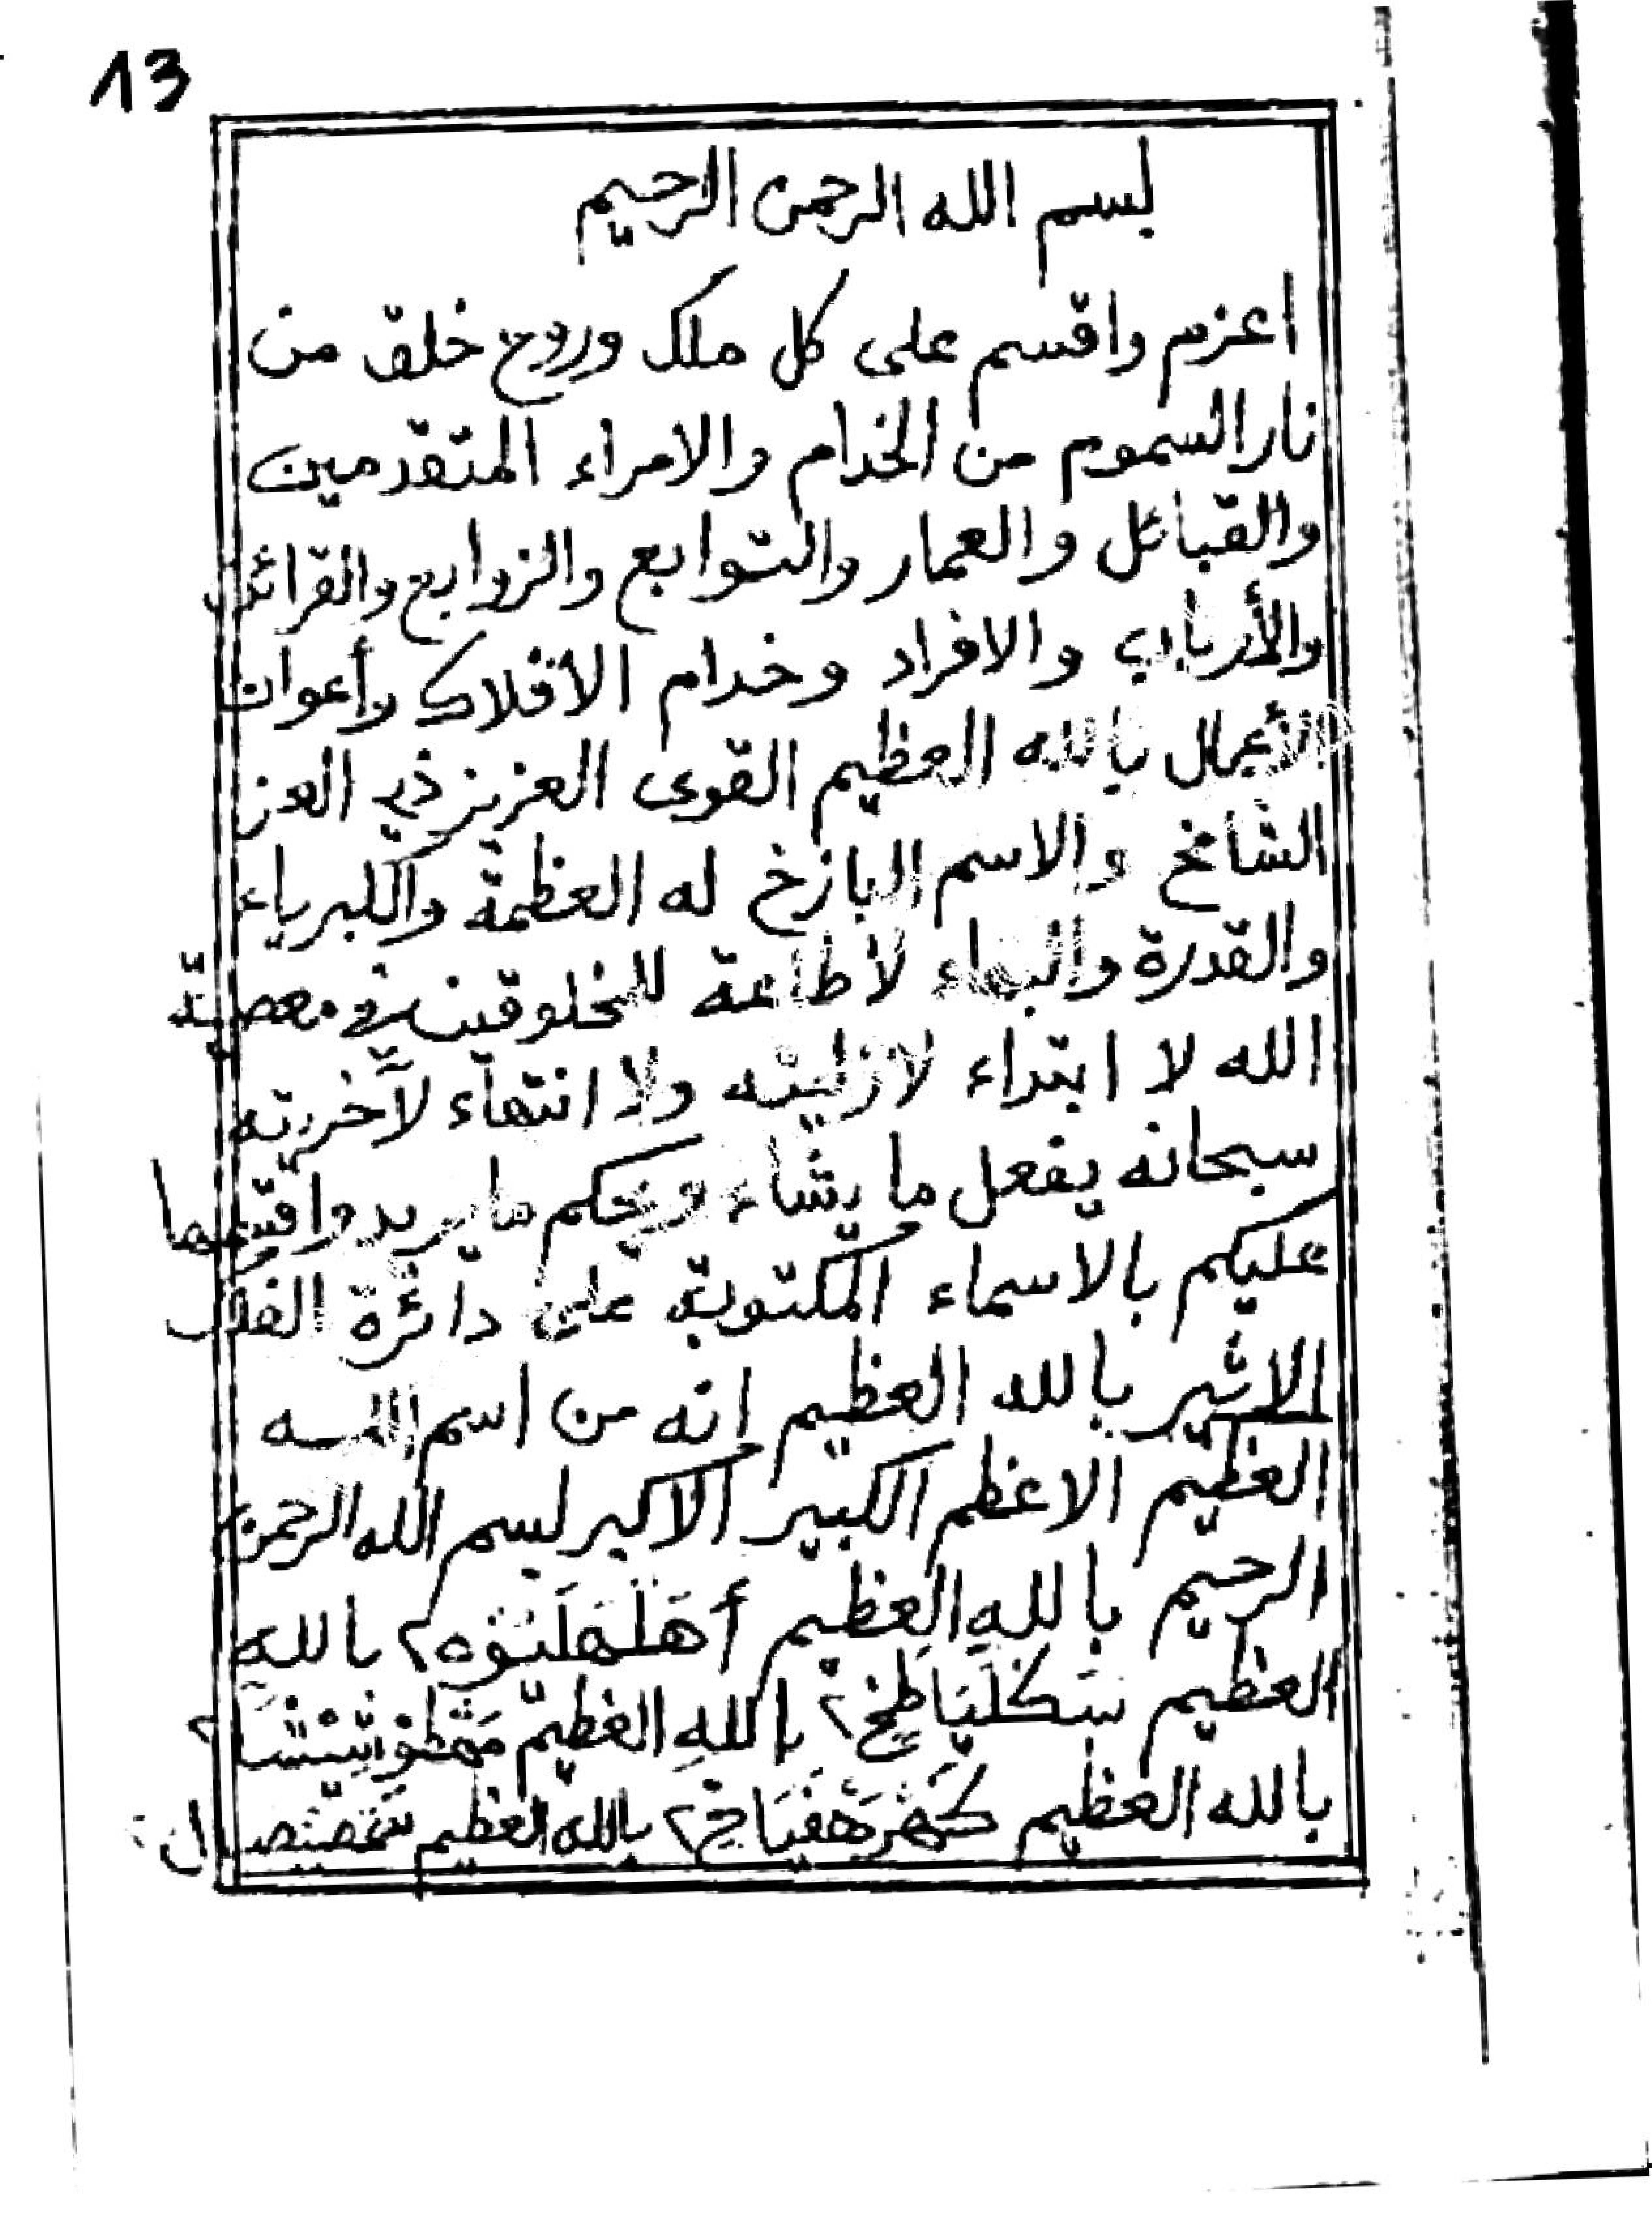 13
بسم الله الرحمن الرحيم
اعزم واقسم على كل ملك وروح خلق من
نار السموم من الخدام والامراء المتقدمين
والقبائل والعمار والتوابع والزوابع والقرائن
والأرباب والافراد وخدام الافلاك وأعوان
الأعمال بالله العظيم القوى العزيز ذي العز
الشامخ والاسم البازخ له العظمة والكبرياء
والقدرة والبهاء لاطاعة للمخلوقين في معصية
الله لا ابتداء لازليته ولا انتهاء لآخريته
سبحانه يفعل ما يشاء ويحكم ما يريد
عليكم بالاسماء المكتوبة على دائرة الفلك
الاثير بالله العظيم انه من اسم الله
العظيم الاعظم الكبير الاكبر بسم الله الرحمن
الرحيم باللهِ العظيم ٢ باللهِ
العظيم ٢ باللهِ العظيم ٢
بالله العظيم ٢ بالله العظيم